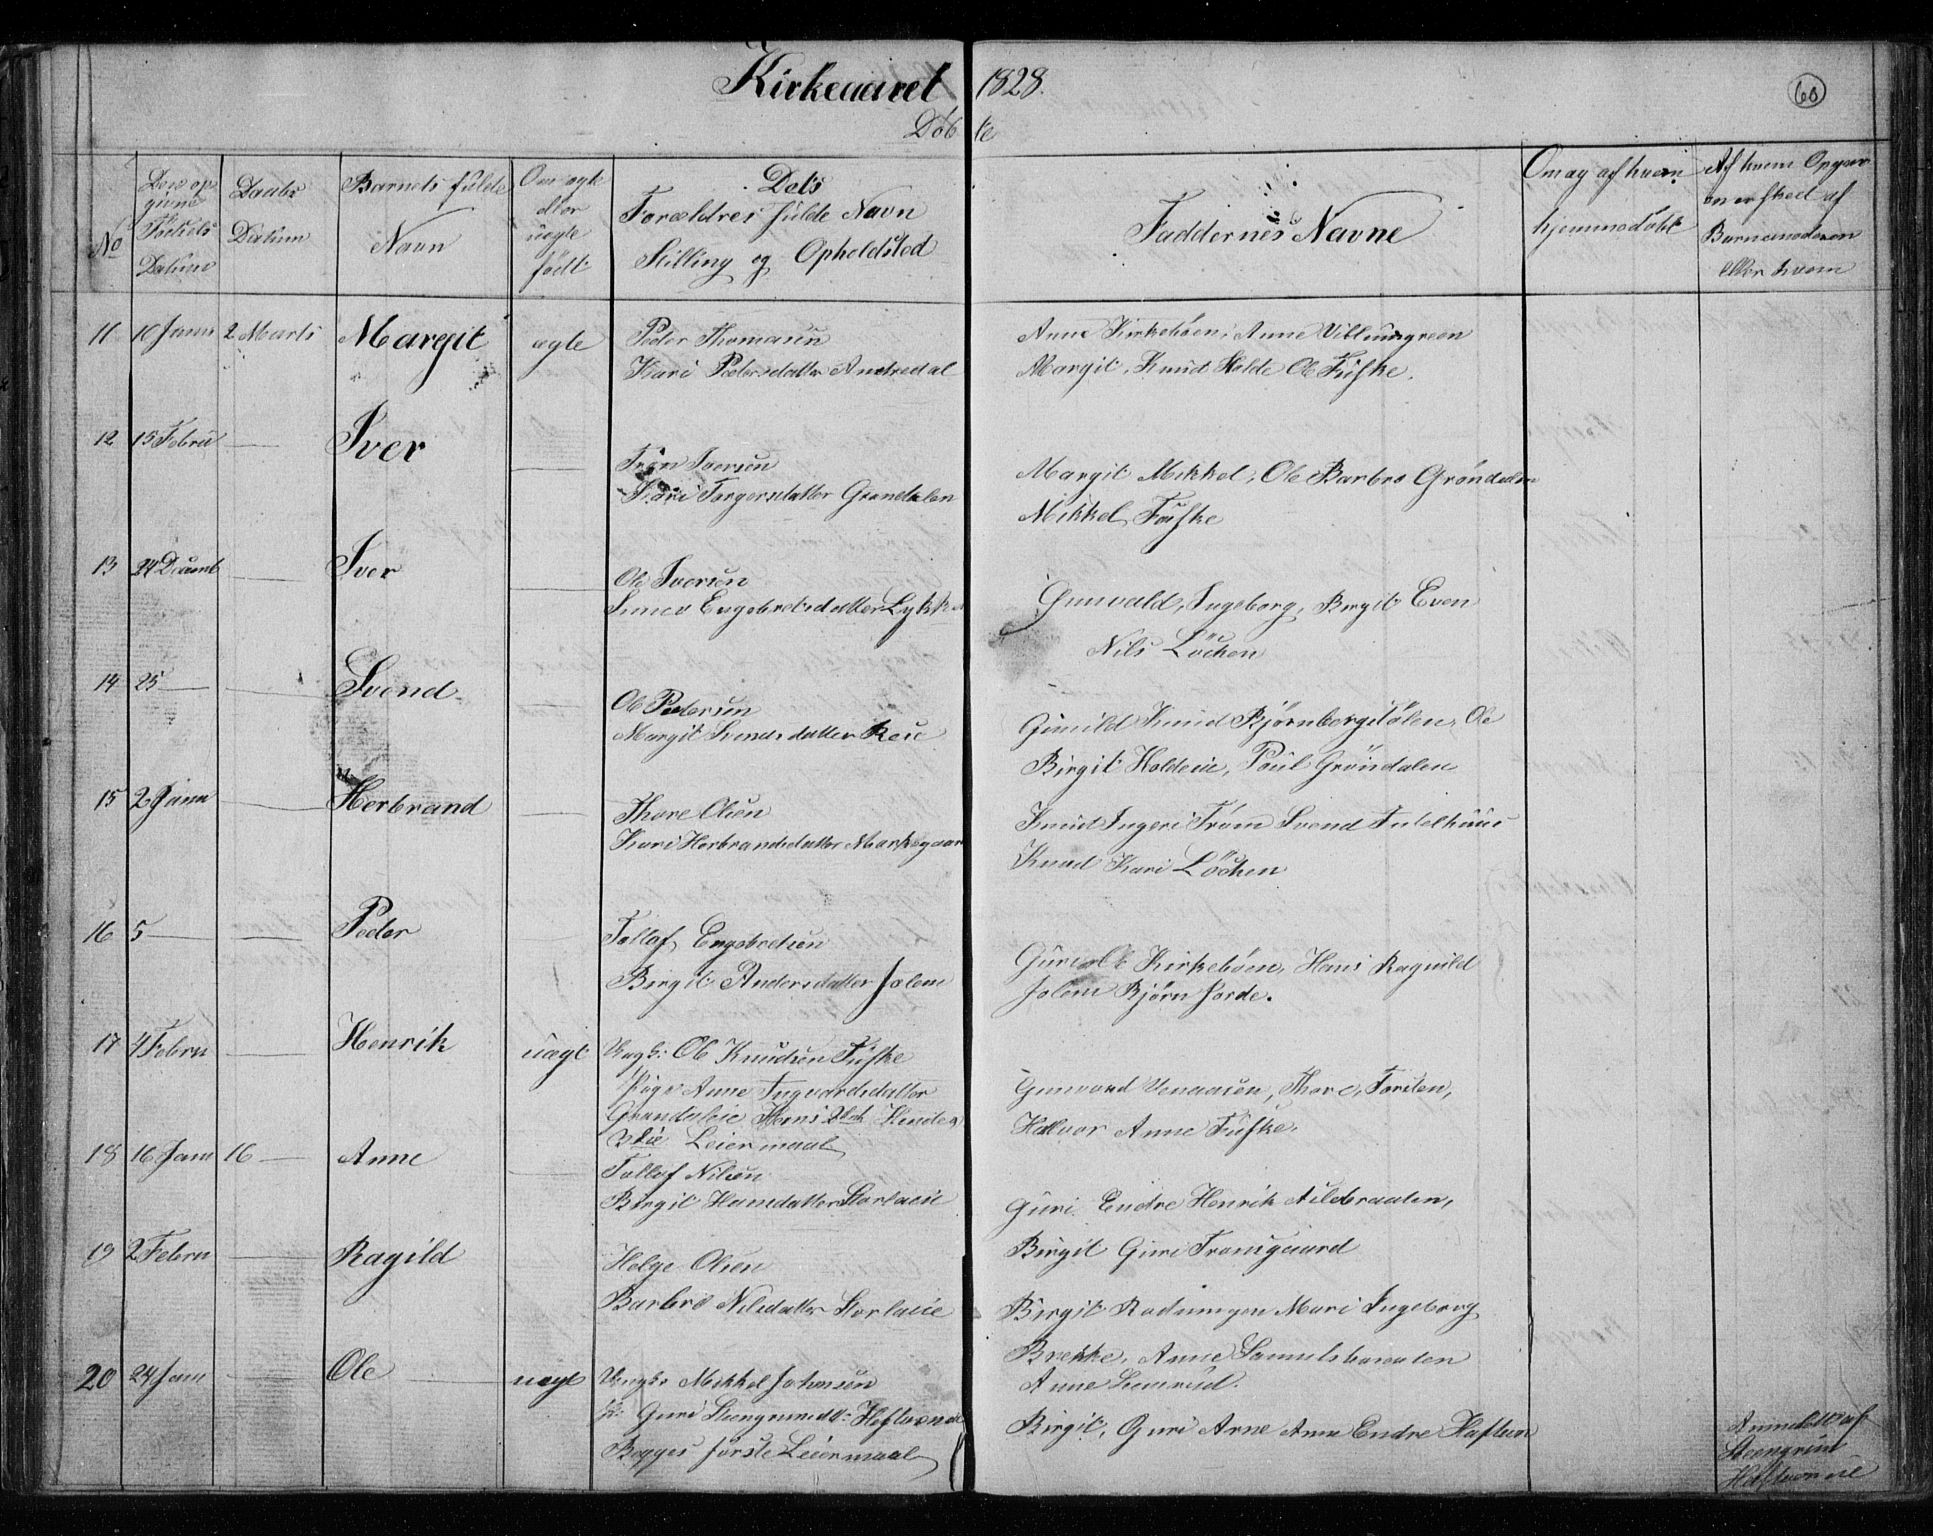 Kirkeaaret 1828.
60
Döbte
No
Den op
givne
Födsels
Datum
Daabs
Datum
Barnets fulde
Navn
Om ægte
eller
uægte
født
Dets
Forældres fulde Navn
Stilling og Opholdsted
Faddernes Navne
Om og af hvem
hjemmedøbt
Af hvem Opgav
en er skeed af
Barnemoderen
eller hvem
11 10 Janu 2 Marts Margit ægte Peder Thomasen
Kari Pedersdatter Andredal
Anne Kirkebøen, Anne Villumgreen
Margit, Knud Holde Ole Tufske.
12 15 Febru — Iver — Trön Iversen
Kari Torgersdatter Grøndalen
Margit Mikkel, Ole Barbro Gröndalen
Mikkel Tufske
13 24 Decemb — Iver — Ole Iversen
Engebretsdatter Lykk
Gunvald, Ingeborg, Birgit Even
Nils Löchen
14 25 — — Svend — Ole Pedersen
Margit Svendsdatter Reie
Gunild Knud Björnbergstölen, Ole
Birgit Holdeie, Poul Gröndalen
15 2 Janu — Herbrand — Thore Olsen
Kari Herbrandsdatter Markegaar
Knud Ingeri Tröm Svend Tufelhuus
Knud Kari Löchen
16 5 — — Peder Tollof Engebretsen
Birgit Andersdatter Jolem
Guri Ole Kirkebøen, Hans Ragnild
Jolem Björn Jorde.
17 4 Febru — Henrik uægt Ungk: Ole Knudsen Tufske
Pige Anne Ingvardsdatter
Grøndaleie Hans 2det Hendes
Leiermaal
Gunvord Venaasen, Thore, Torsten,
Halvor Anne Tufske.
18 16 Janu 16 — Anne — Tollof Nilsen
Birgit Hansdatter Storlaeie
Guri Endre Henrik Nilsbraaten,
Birgit Guri Tronsgaard
19 2 Febru — Ragild Helge Olsen
Barbro Nilsdatter Storlaeie
Birgit Rodningen Mari Ingeborg
Brekke, Anne Samulsbraaten
Anne Lunsrud.
20 24 Janu — Ole — uægt Ungk: Mikkel Johnsen
P: Guri Steengrimsd: Hoftuneie
Begges første Leiermaal
Birgit, Guri Arne Anne Endre Haftun
Anmeldt af
Steengrim
Haftuneie